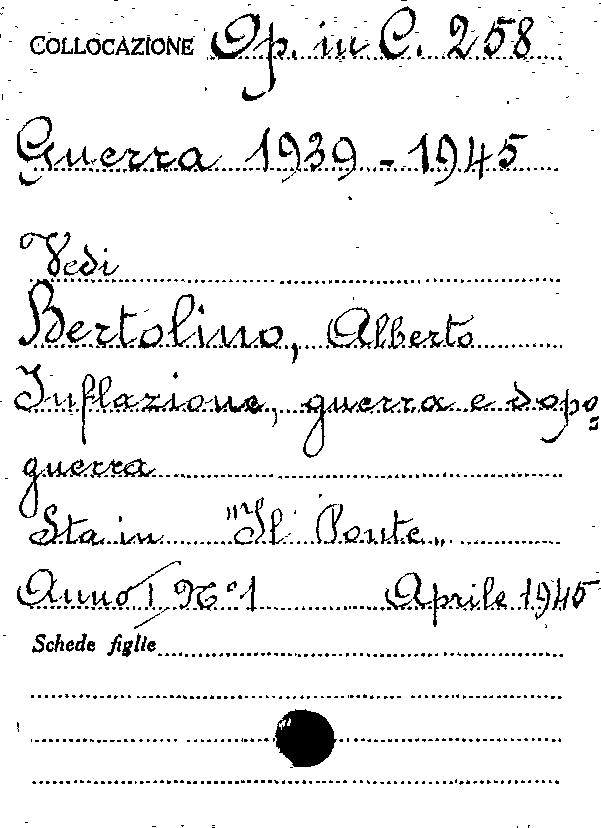 COLLOCAZIONE Op. in C. 258
Guerra 1939 - 1945
Vedi
Bertolino, Alberto
Inflazione, guerra e dopo=
guerra
Sta in "Il Ponte"
Anno I, N° 1 Aprile 1945
Schede figlie